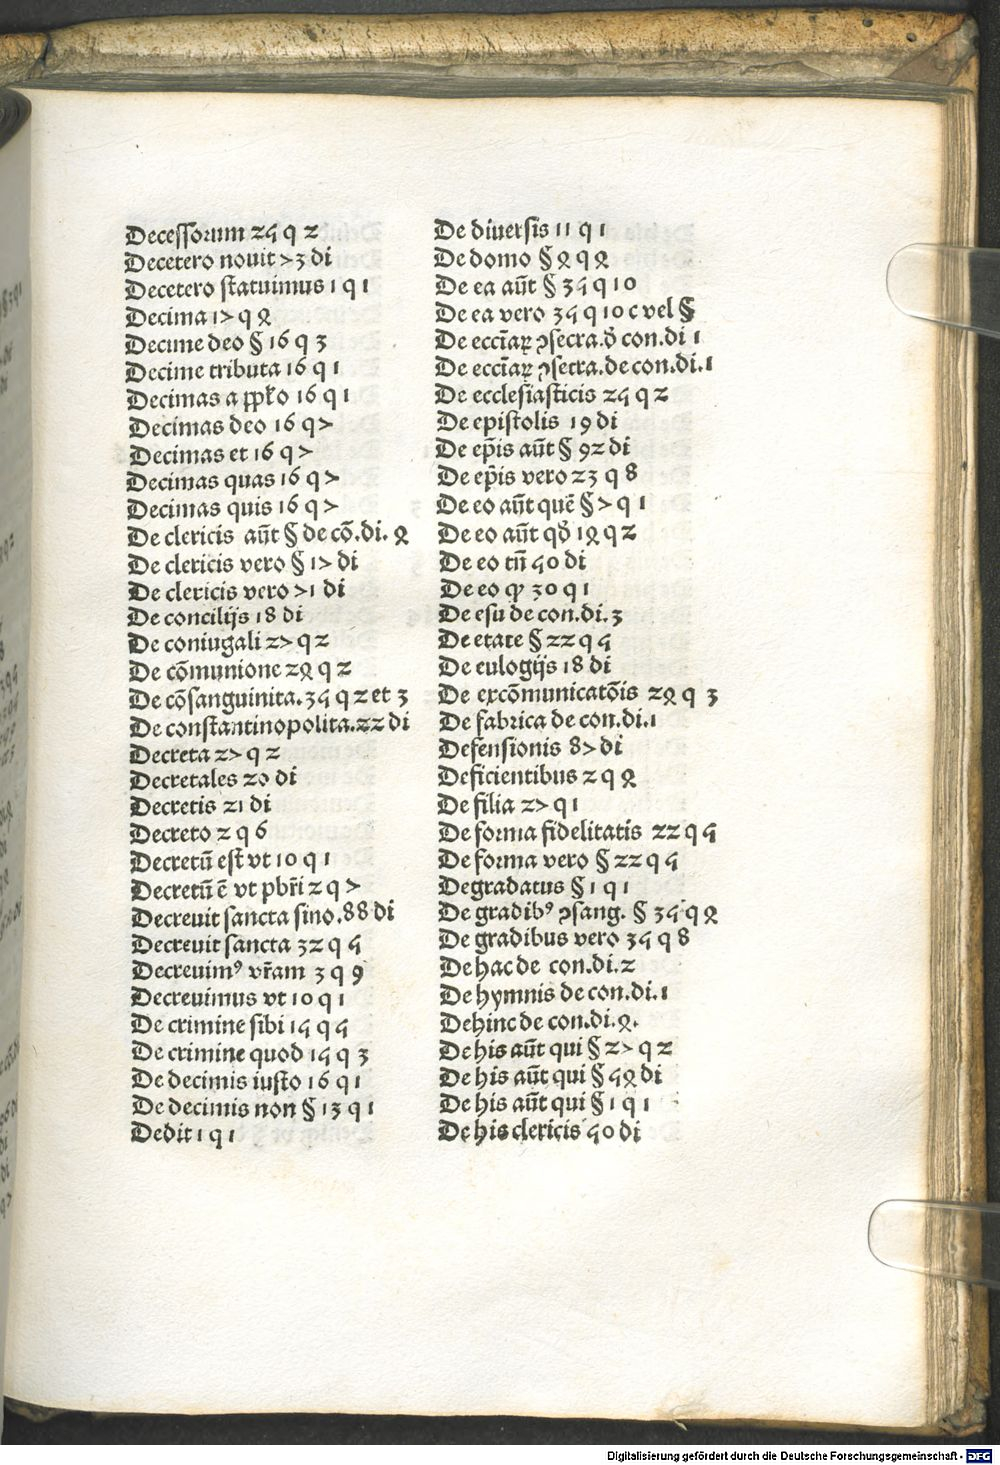 Decessorum 25 q 2
Decetero nouit 73 di
Decetero statuimus 1 q 1
Decima 17 q 4
Decime deo § 16 q 3
Decime tributa 16 q 1
Decimas a ꝓpło 16 q 1
Decimas deo 16 q 7
Decimas et 16 q 7
Decimas quas 16 q 7
Decimas quis 16 q 7
De clericis aūt § de cō.di. 4
De clericis vero § 17 di
De clericis vero 71 di
De concilijs 18 di
De coniugali 27 q 2
De cōmunione 24 q 2
De cōsanguinita.35 q 2 et 3
De constantinopolita.22 di
Decreta 27 q 2
Decretales 20 di
Decretis 21 di
Decreto 2 q 6
Decretū est vt 10 q 1
Decretū ē vt pbr̄i 2 q 7
Decreuit sancta sino.88 di
Decreuit sancta 32 q 5
Decreuimꝰ vr̄am 3 q 9
Decreuimus vt 10 q 1
De crimine sibi 15 q 5
De crimine quod 15 q 3
De decimis iusto 16 q 1
De decimis non § 13 q 1
Dedit 1 q 1
De diuersis 11 q 1
De domo § 4 q 4
De ea aūt § 35 q 10
De ea vero 35 q 10 c vel §
De eccīaꝝ ꝯsecra.d̄ con.di 1
De eccīaꝝ ꝯsecra.de con.di.1
De ecclesiasticis 25 q 2
De epistolis 19 di
De ep̄is aūt § 92 di
De ep̄is vero 23 q 8
De eo aūt quē § 7 q 1
De eo aūt qd̄ 14 q 2
De eo tn̄ 50 di
De eo ꝙ 30 q 1
De esu de con.di.3
De etate § 22 q 5
De eulogijs 18 di
De excōmunicatōis 24 q 3
De fabrica de con.di.1
Defensionis 87 di
Deficientibus 2 q 4
De filia 27 q 1
De forma fidelitatis 22 q 5
De forma vero § 22 q 5
Degradatus § 1 q 1
De gradibꝰ ꝯsang. § 35 q 4
De gradibus vero 35 q 8
De hac de con.di.2
De hymnis de con.di.1
Dehinc de con.di.4.
De his aūt qui § 27 q 2
De his aūt qui § 54 di
De his aūt qui § 1 q 1
De his clericis 50 di
Digitalisierung gefördert durch die Deutsche Forschungsgemeinschaft - DFG